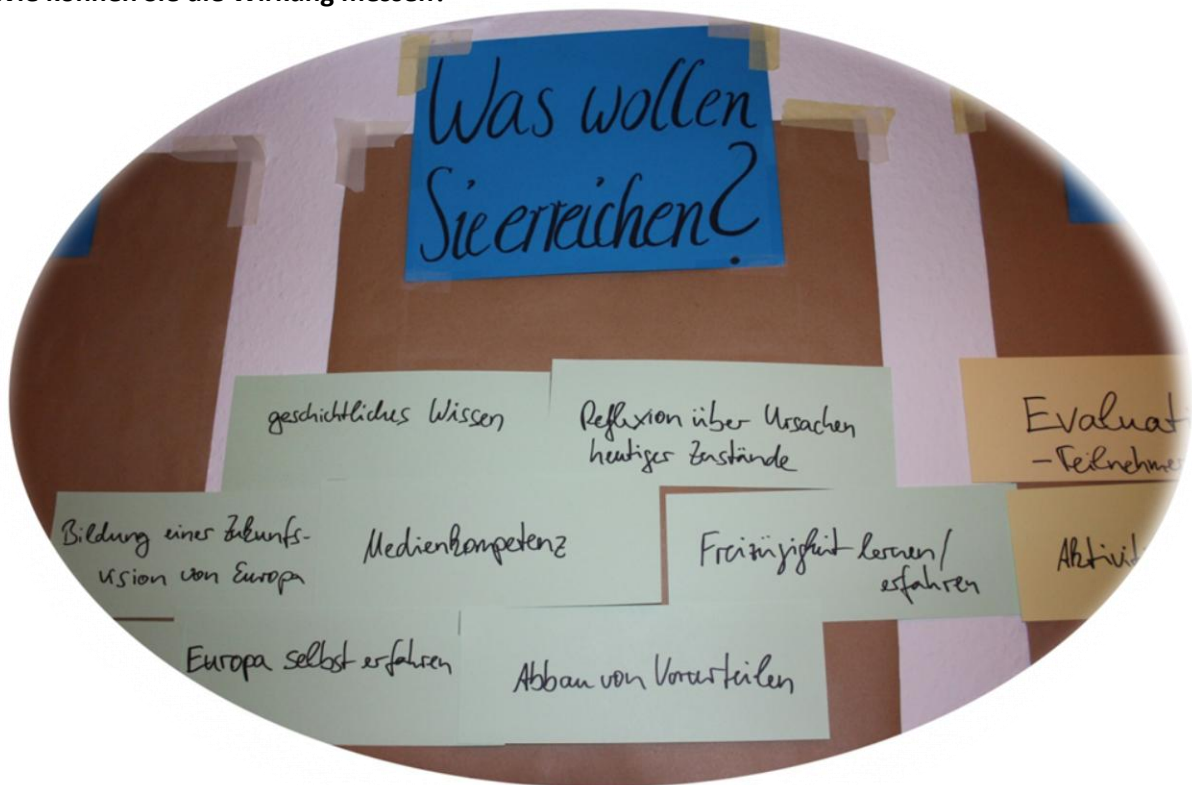 Was wollen
Sie erreichen?
geschichtliches Wissen
Reflexion über Ursachen
heutiger Zustände
Evaluati
- Teilnehmer
Bildung einer Zukunfs-
vision von Europa
Medienkompetenz
Freizügigkeit lernen/
erfahren
Aktivit
Europa selbst erfahren
Abbau von Vorurteilen